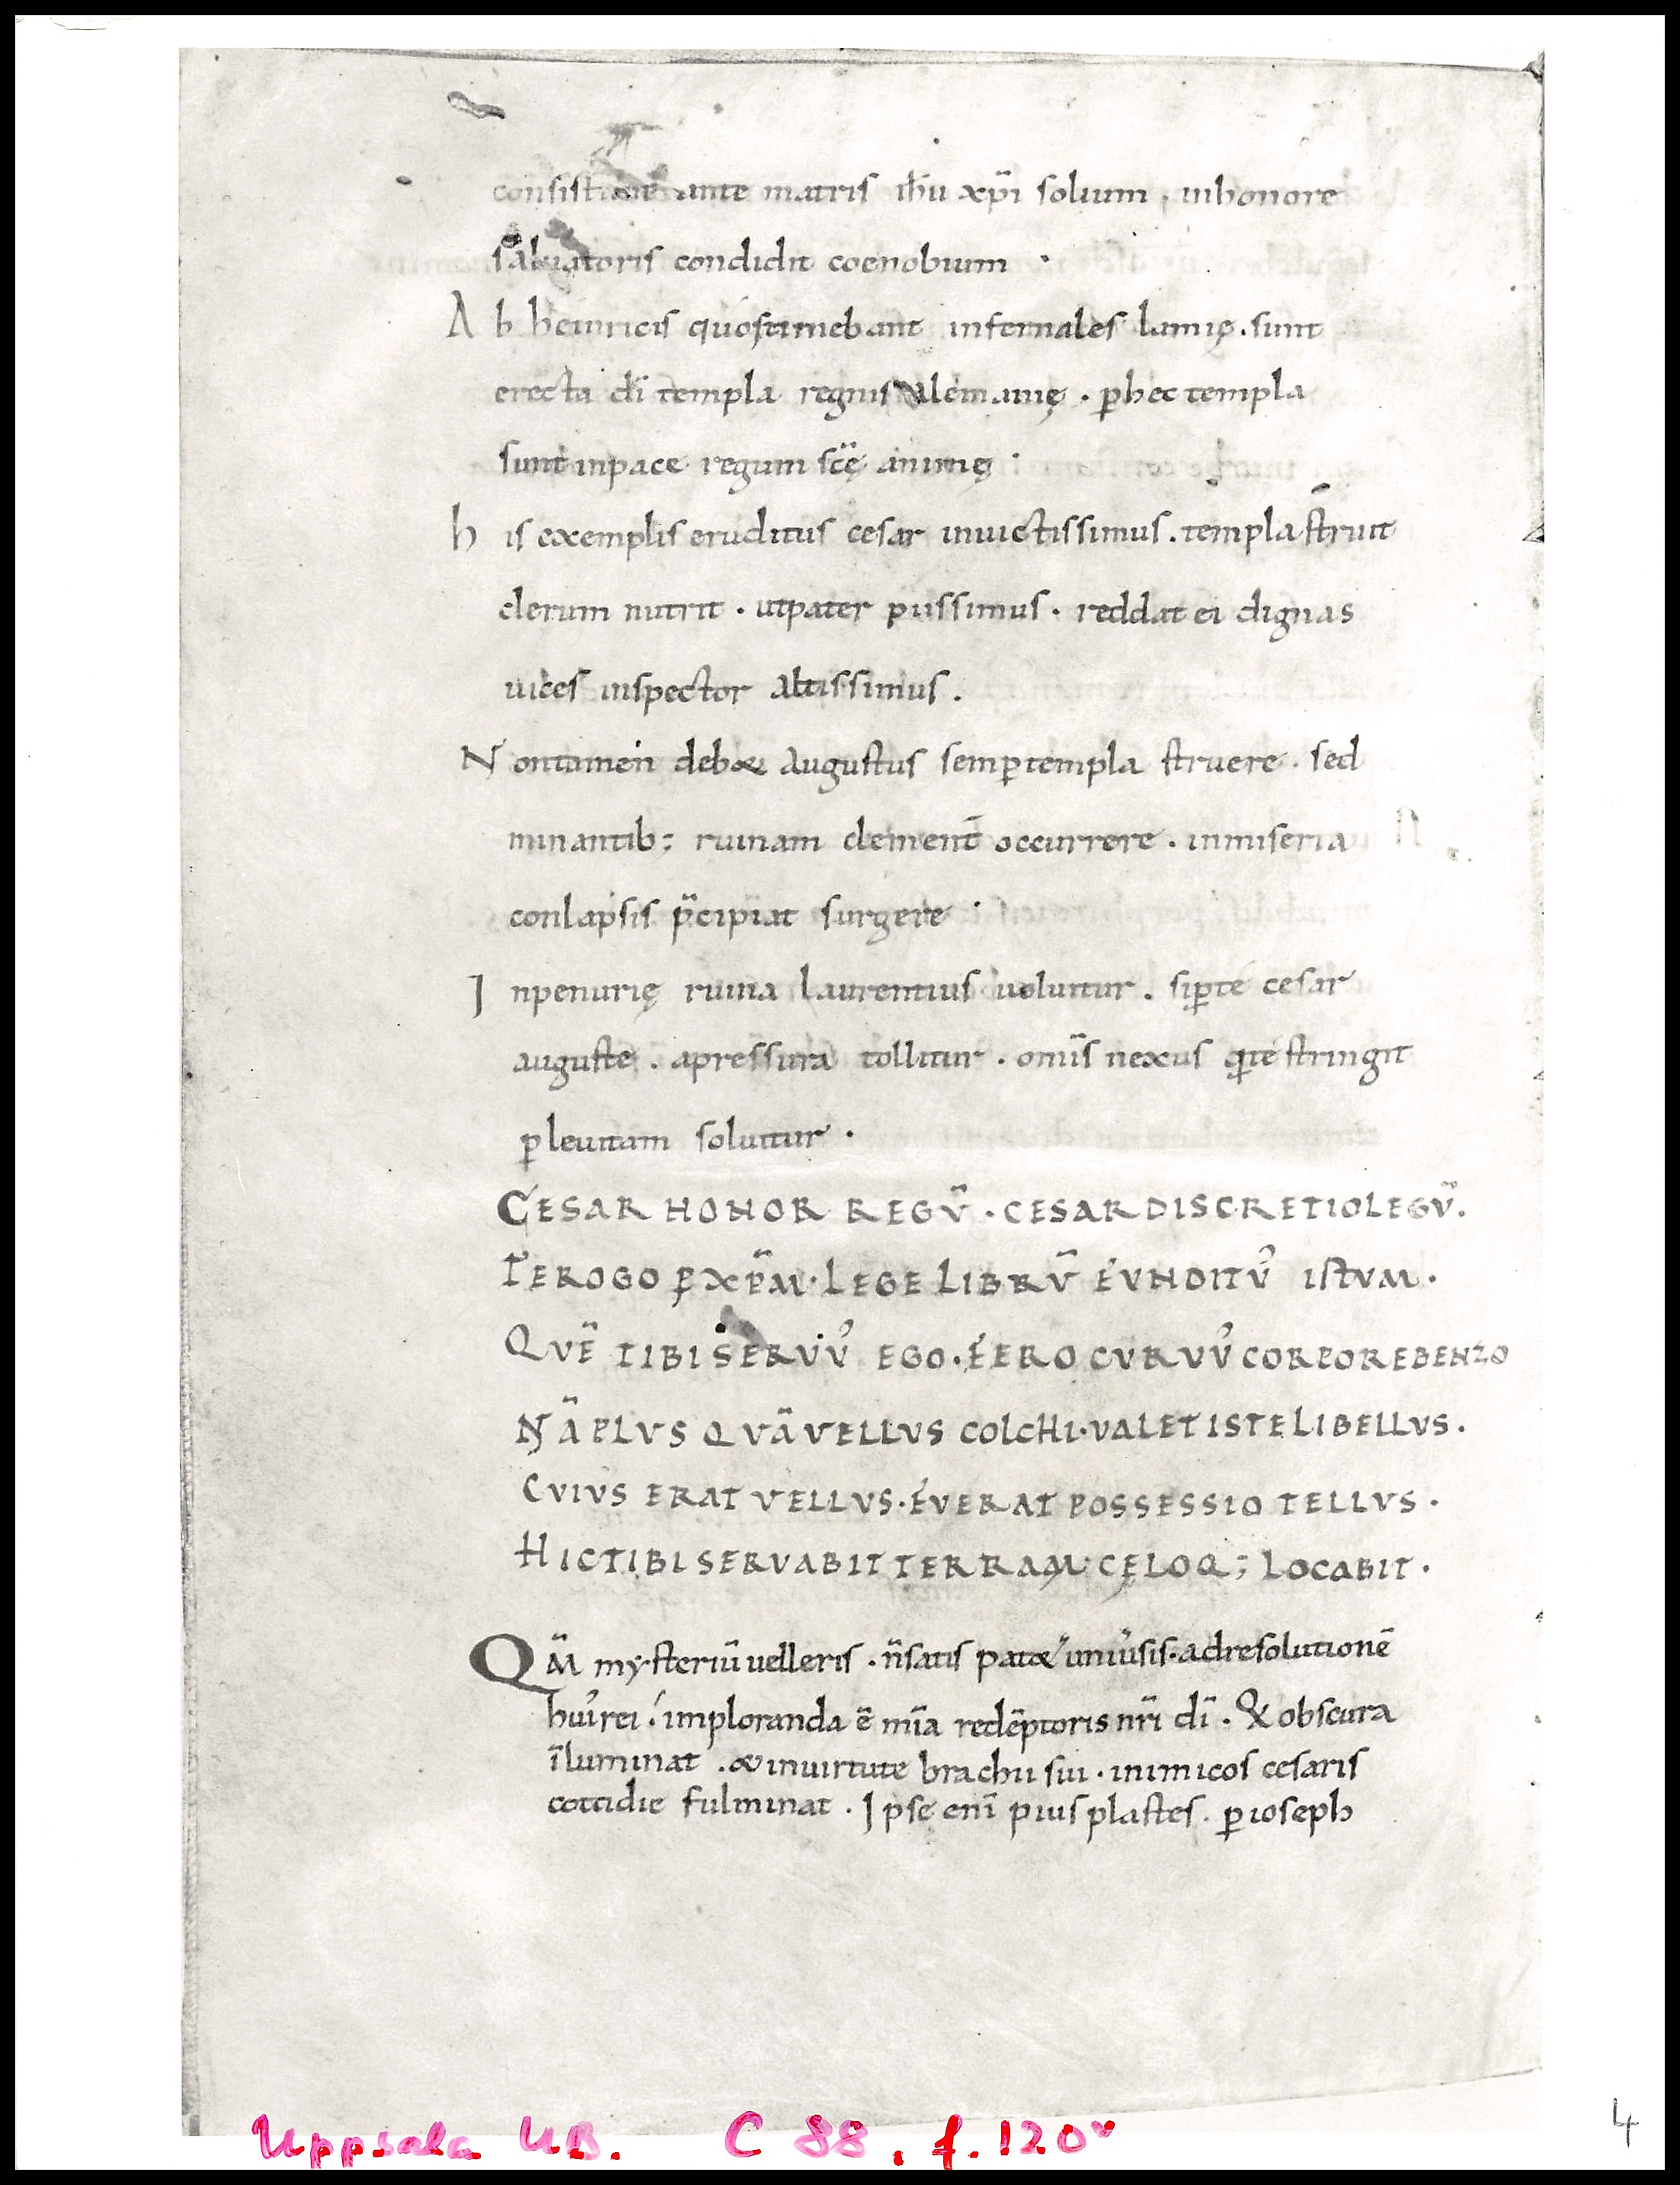 consistione ante matris ih̅u xp̅i solium . inhonore
saluatoris condidit coenobium .
A b heinricis quostimebant infernales lamię . sunt
erecta di̅ templa regnis Alemanię . ꝑhec templa
sunt inpace regum sc̅ę animę .
h is exemplis eruditus cesar inuictissimus . templa struit
clerum nutrit . utpater piissimus . reddat ei dignas
uices inspector altissimus .
N ontamen debet Augustus semꝑtempla struere . sed
minantib; ruinam clement̅ occurrere . inmiseria
conlapsis p̅cipiat surgere .
I npenurię ruina laurentius uoluitur . siꝑte cesar
auguste . apressura tollitur . omi̅s nexus qͥte stringit
ꝑ leuitam soluitur .
CESAR HONOR REGV̅ . CESAR DISCRETIO LEGV̅ .
TEROGO ꝑ XP̅M . LEGE LIBRV̅ E̓VNDITV᾽ ISTVM .
QVE̅ TIBI SERVV᾽ EGO . FERO CVRVV᾽ CORPORE BENZO
NA̅ PLVS QVA̅ VELLVS COLCHI . VALET ISTE LIBELLVS .
CVIVS ERAT VELLVS . E᾽VERAT POSSESSIO TELLVS .
HIC TIBI SERVABIT TERRAM . CĘLOQ; LOCABIT .
QM̅ mysteriu̅ uelleris . n̅satis patet uniu᾽sis . adresolutione̅
hui᾽rei . imploranda e̅ mi̅a rede̅ptoris nr̅i di̅ . Q obscura
i̅luminat . & inuirtute brachii sui . inimicos cesaris
cottidie fulminat . Ipse eni̅ pius plastes . ꝑ ioseph
Uppsala UB. C 88, f. 120v
4